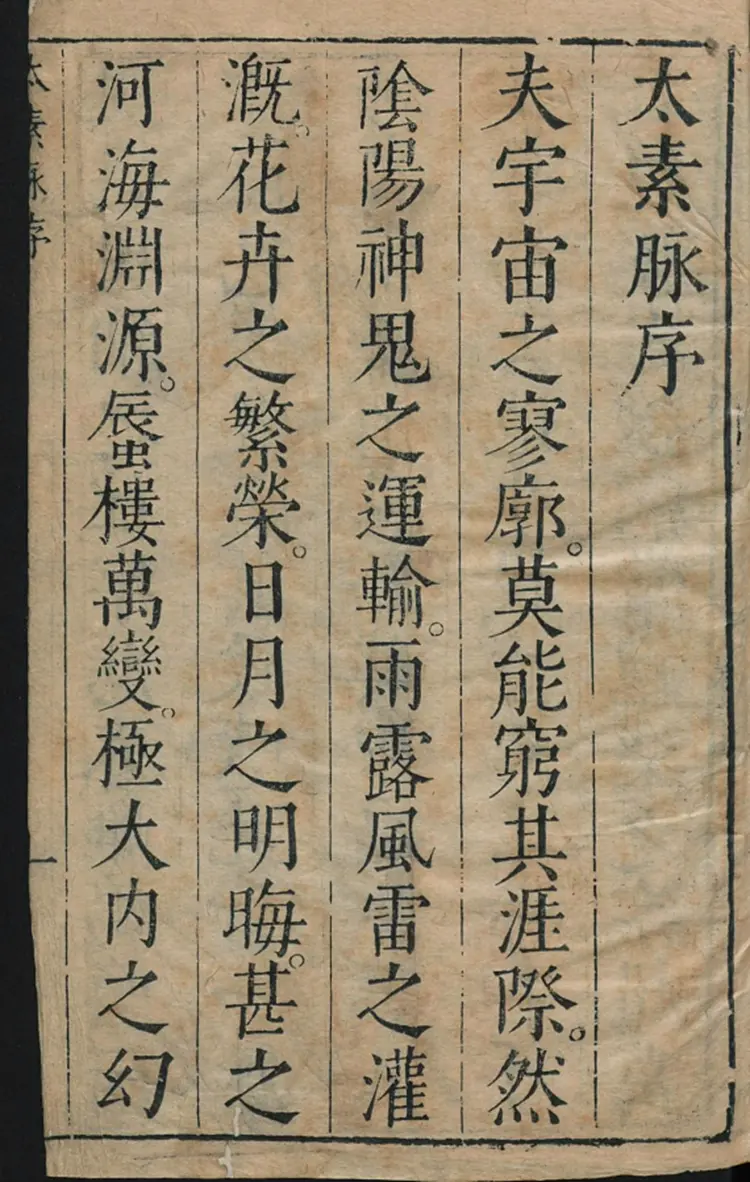 太素脉序
夫宇宙之寥廓。莫能窮其涯際。然
陰陽神鬼之運輸。雨露風雷之灌
溉。花卉之繁榮。日月之明晦。甚之
河海淵源。蜃樓萬變。極大内之幻
太素脉序
一